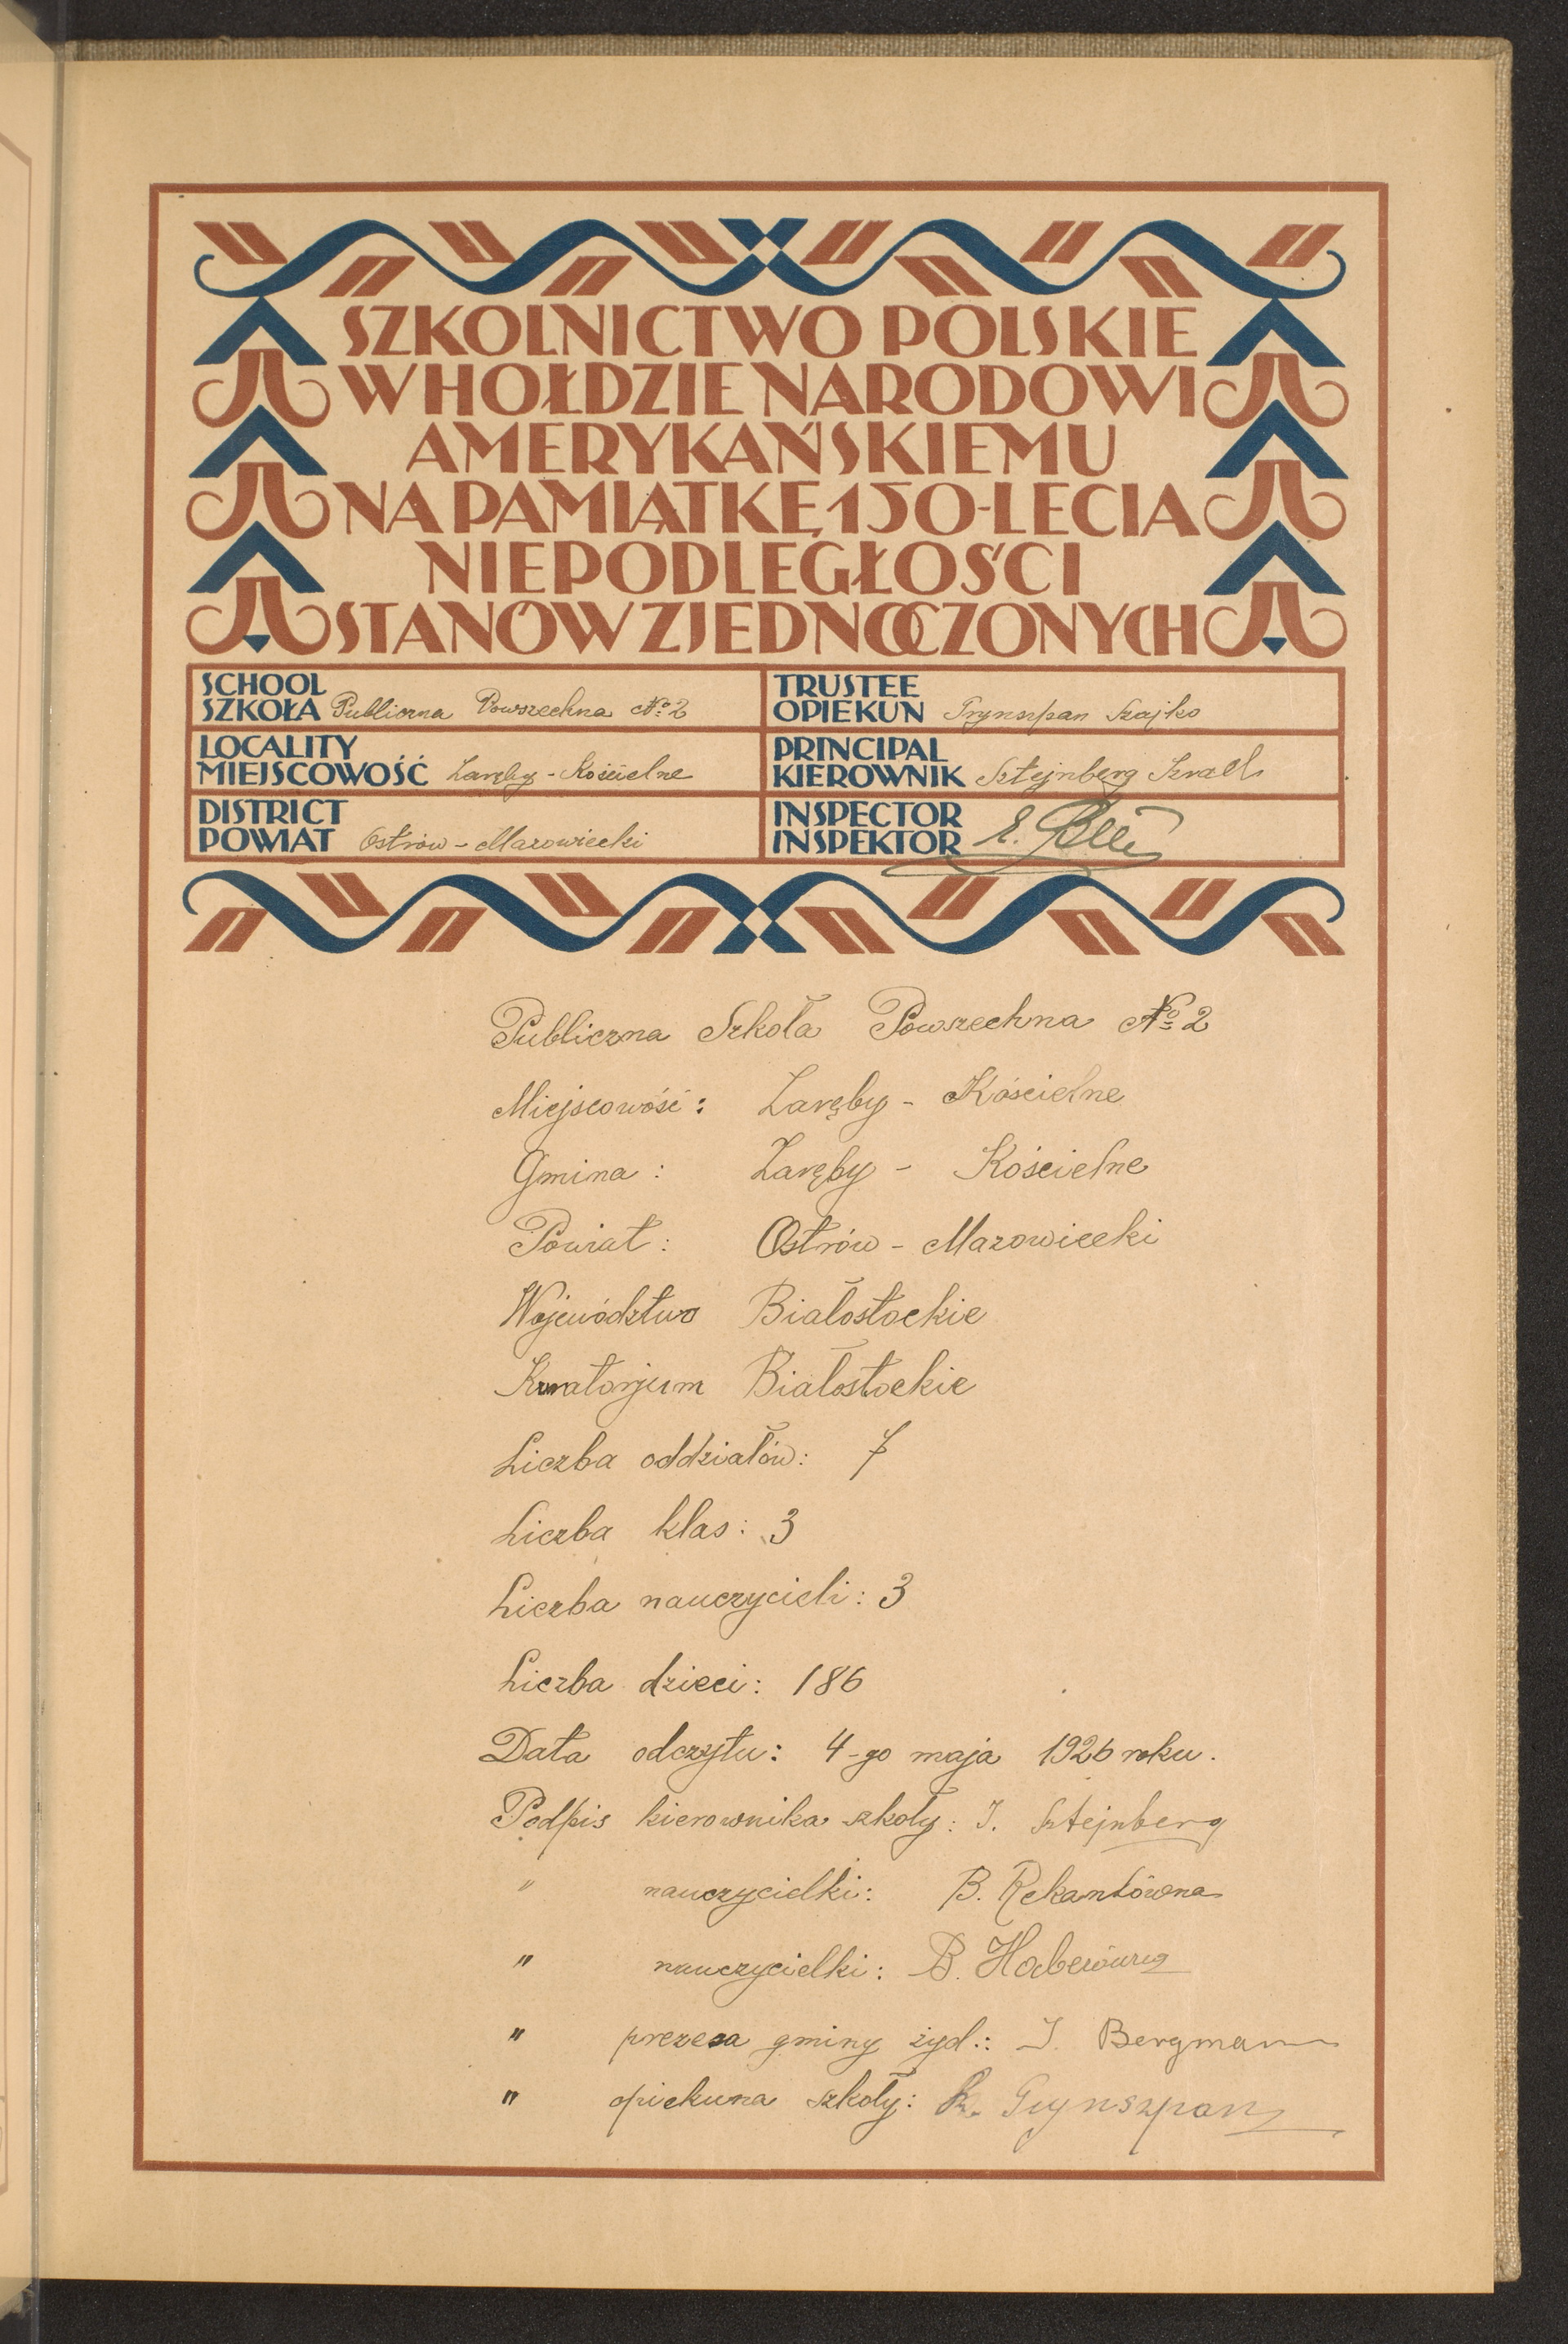 SZKOLNICTWO POLSKIE
W HOŁDZIE NARODOWI
AMERYKAŃSKIEMU
NA PAMIĄTKĘ 150-LECIA
NIEPODLEGŁOŚCI
STANÓW ZJEDNOCZONYCH
SCHOOL
SZKOŁA Publiczna Powszechna № 2
TRUSTEE
OPIEKUN Grynszpan Szajko
LOCALITY
MIEJSCOWOŚĆ Zaręby-Kościelne
PRINCIPAL
KIEROWNIK Sztejnberg Izrael
DISTRICT
POWIAT Ostrów-Mazowiecki
INSPECTOR
INSPEKTOR
Publiczna Szkoła Powszechna № 2
Miejscowość: Zaręby - Kościelne
Gmina: Zaręby - Kościelne
Powiat: Ostrów - Mazowiecki
Województwo Białostockie
Kuratorjum Białostockie
Liczba oddziałów: 7
Liczba klas: 3
Liczba nauczycieli: 3
Liczba dzieci: 186
Data odczytu: 4-go maja 1926 roku.
Podpis kierownika szkoły: I. Sztejnberg
" nauczycielki: B. Rekantówna
" nauczycielki: B.
" prezesa gminy żyd.: I. Bergman
" opiekuna szkoły: Grynszpan